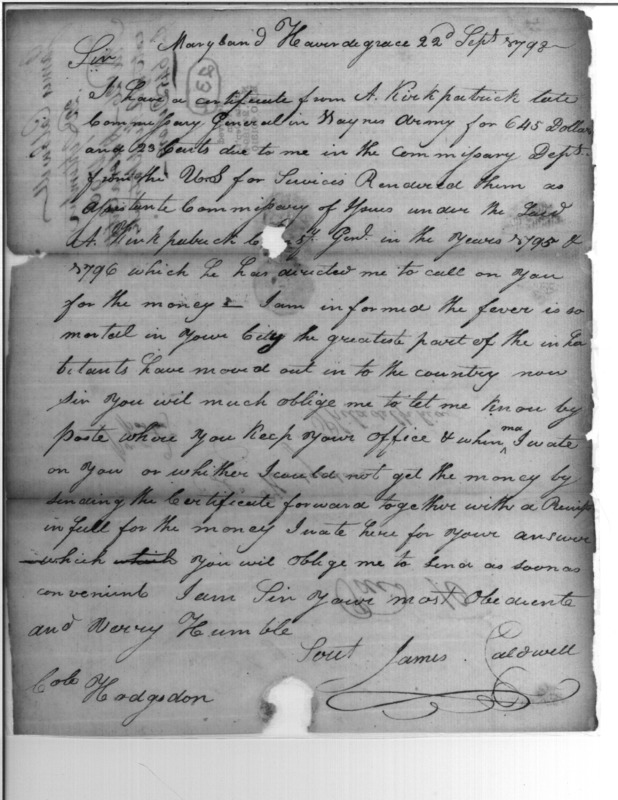 Maryland Haverdegrace 22d Sept 1798
Sir
I have a certificate from A. Kirkpatrick late
Commissary General in Waynes Army for 645 Dollars
and 23 Cents due to me in the Commissary Dept.
from the US for Services Rendered them as
Assistante Commissary of Yours under the Said
A. Kirkpatrick Genl. in the Years 1795 &
1796 which he has directed me to call on You
for the money - I am informed the fever is so
mortell in Your City the greatiste part of the inha
bitants have moved out in to the country now
Sir You wil much oblige me to let me know by
poste where You keep Your office & when ma I wate
on You or whither I could not get the money by
sinding the Certificate forward together with a Recipt
in full for the money I wate here for Your answer
which which You wil oblige me to send as soon as
convenient I am Sir Your most Obediente
and Verry Humble
Servt James Caldwell
Colo Hodgsdon